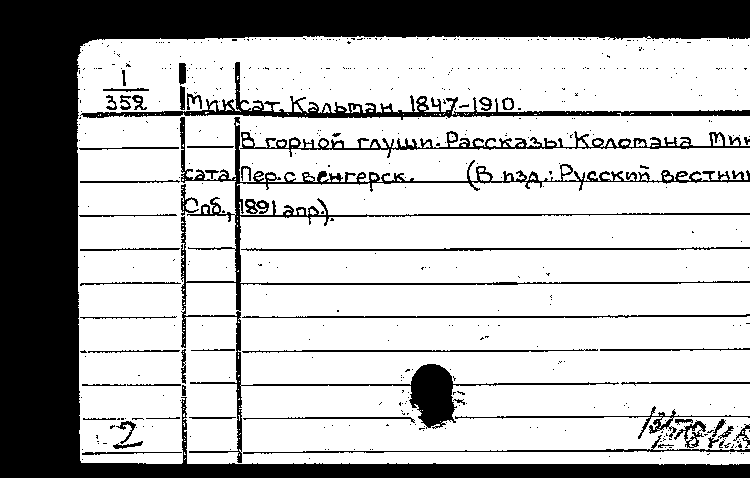 1
352
Миксат, Кальман, 1847-1910.
В горной глуши. Рассказы Коломана Мик
сата. Пер. с венгерск. (В изд.: Русский вестник
Спб., 1891 апр.).
2